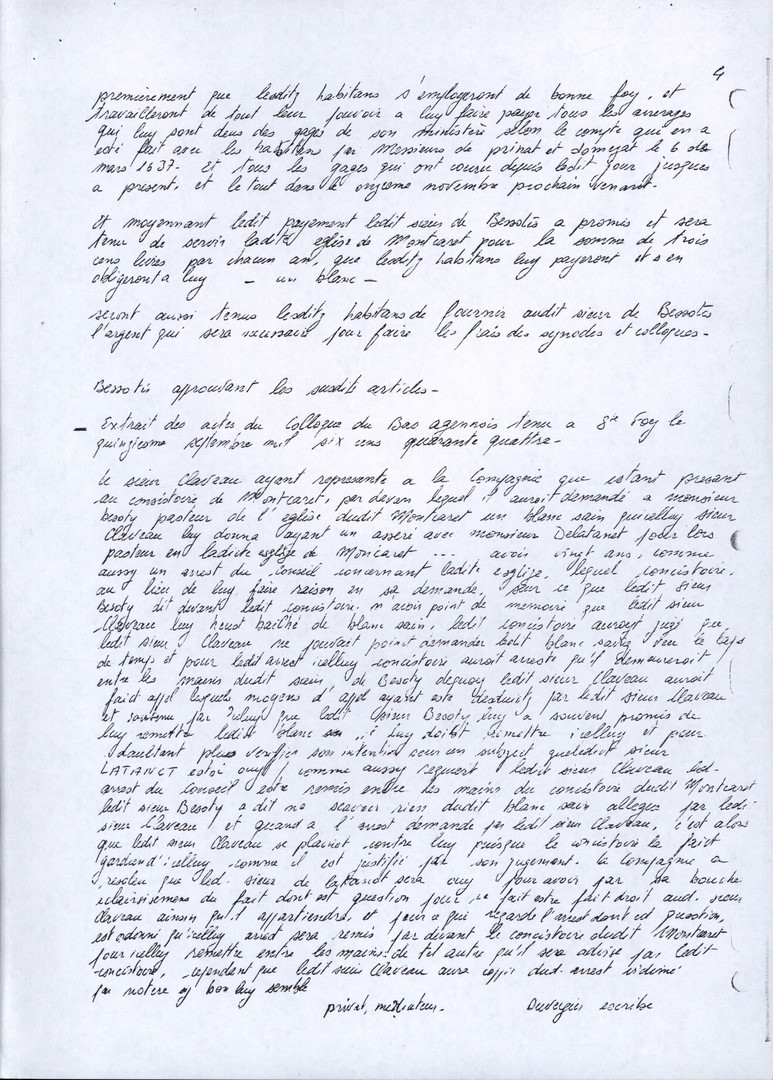 4
premièrement que lesditz habitans s'employeront de bonne foy, et
travailleront de tout leur pouvoir a luy faire payer tous les arrerages
qui luy sont deus des gages de son ministère selon le compte que en a
esté fait avec les habitans par Messieurs de privat et le 6 de
mars 1637. et tous les gages qui ont couru depuis ledit jour jusques
a present, et le tout dans le onzieme novembre prochain venant.
Et moyennant ledit payement ledit sieur de Bessotis a promis et sera
tenu de servir ladite eglise de Montcaret pour la somme de trois
cens livres par chacun an, que lesditz habitans luy payeront et s'en
obligeront a luy — un blanc —
seront aussi tenus lesditz habitans de fournir audit sieur de Bessotis
l'argent qui sera necessaire pour faire les frais des synodes et colloques -
Bessotis approuvant les susdits articles -
Extrait des actes du Colloque du Bas agennois tenu a Ste Foy le
quinziesme septembre mil six cens quarante quattre -
le sieur Claveau ayant represente a la Compagnie que estant present
au consistoire de Montcaret, par devan lequel il auroit demandé a monsieur
Besoty pasteur de l'eglise dudit Montcaret un blanc sain qu'icelluy sieur
Claveau luy donna ayant un avec monsieur Delatanet pour lors
pasteur en ladicte esglize de Moncaret --- avois vingt ans, comme
aussy un arrest du Conseil concernant ladite esglize, lequel concistoire,
au lieu de luy faire raison en sa demande, sur ce que ledit sieur
Besoty dit devant ledit concistoire n'avoir point de memoire que ledit sieur
Claveau luy heust bailhé de blanc sain, ledit concistoire auroit jugé que
ledit sieur Claveau ne pouvait point demander ledit blanc saing veu le laps
de temps et pour ledit arrest icelluy concistoire auroit arresté qu'il demeureroit
entre les mains dudit sieur de Besoty dequoy ledit sieur Claveau auroit
faict apel lequels moyens d'apel ayant este deduitz par ledit sieur Claveau
et soutenu par iceluy que ledit sieur Besoty luy a souvent promis de
luy remettre ledict blanc luy doibt remettre icelluy et pour
daultant plus verifier son intention sur un subject que ledit sieur
LATANET estoi ouy, comme aussy requiert ledit sieur Claveau led.
arrest du Conseil estre remis entre les mains du concistoire dudit Montcaret
ledit sieur Besoty a dit ne scavoir rien dudit blanc sain allegué par ledi-
sieur Claveau et quand a l'arrest demandé par ledit sieur Claveau, c'est alors
que ledit sieur Claveau se plainct contre luy puisque le concistoire la faict
gardien d'icelluy comme il est justifié par son jugement. la Compagnie a
resoleu que led. sieur de sera ouy pour avoir par sa bouche
eclaircisemens du fait dont est question pour ce fait estre fait droit aud. sieur
Claveau ainsin qu'il appartiendra, et pour ce qui regarde l'arrest dont est question,
est ordonné qu'icelluy arrest sera remis par devant le concistoire dudit Montcaret
pour icelluy remettre entre les mains de tel autre qu'il sera advisé par ledit
concistoire, cependant que ledit sieur Claveau aura copie dud. arrest vidimé
par notere si bon luy semble
privat, mediateur. Duvergier escribe